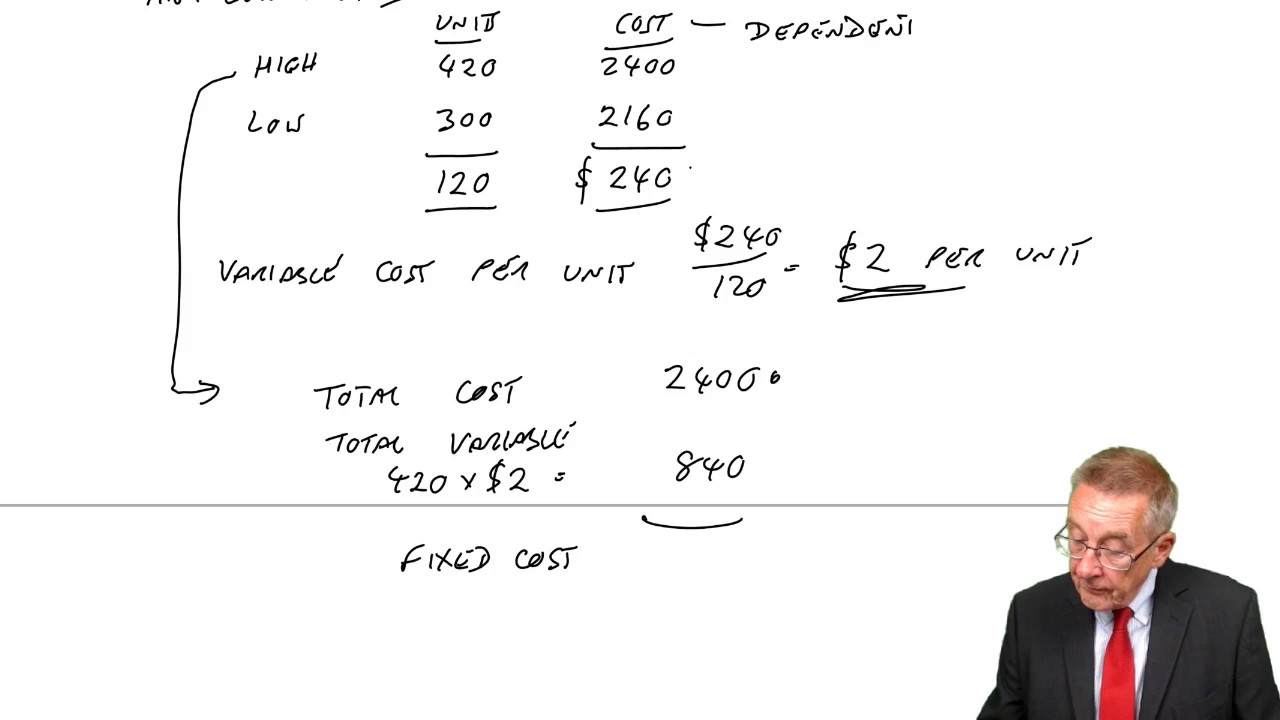 UNIT COST — DEPENDENT
HIGH 420 2400
LOW 300 2160
120 $ 240
VARIABLE COST PER UNIT $240 / 120 = $2 PER UNIT
TOTAL COST 2400
TOTAL VARIABLE
420 x $2 = 840
FIXED COST